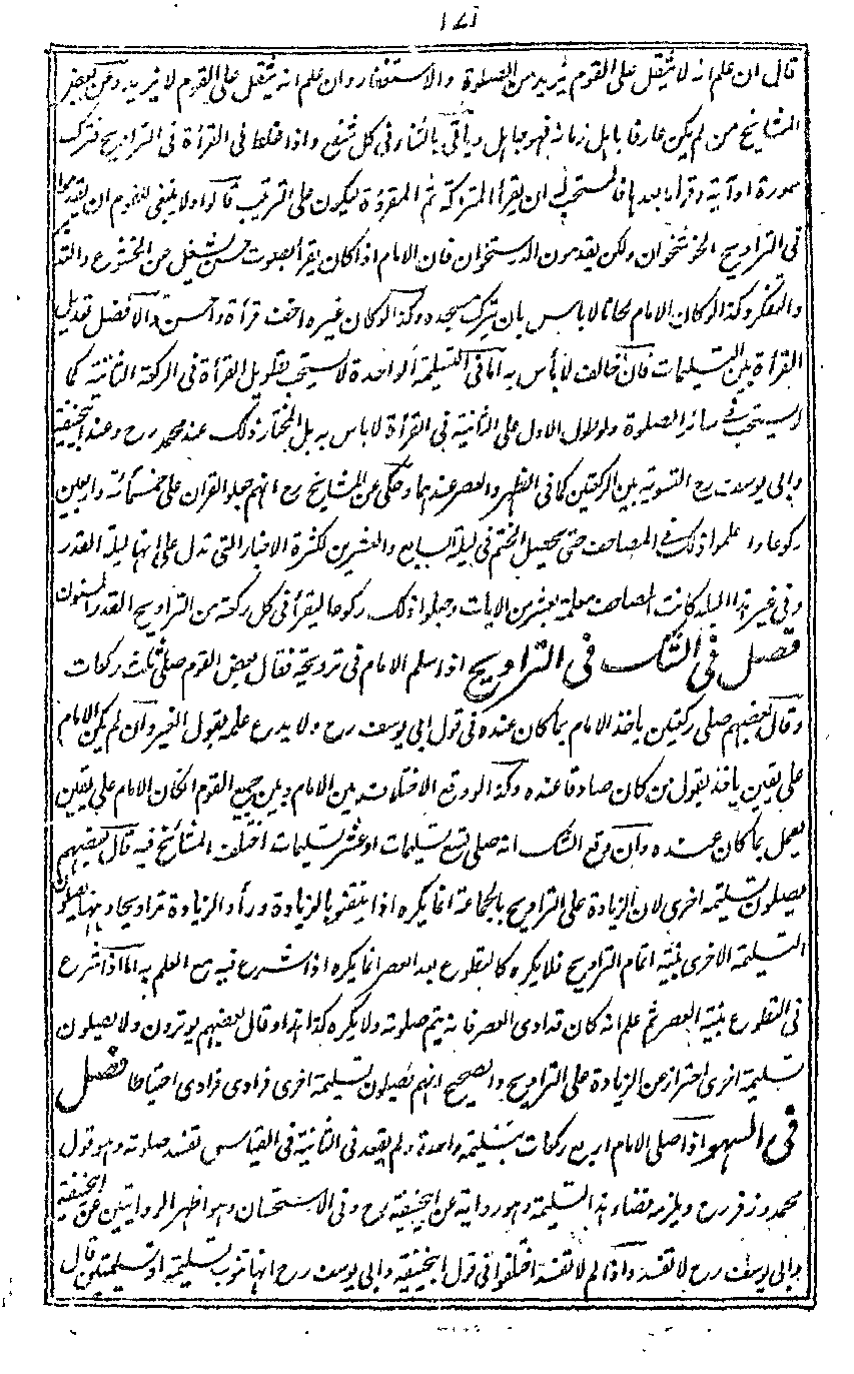 ١٤١
قال ان علم انه لا يثقل على القوم يزيد من الصلوة والاستغفار وان علم انه يثقل على القوم لا يزيد وعن بعض
المشايخ من لم يكن عارفا باهل زمانه فهو جاهل ويأتى بالثناء فى كل شفع واذا غلط فى القرأة فى التراويح فترك
سورة او آية وقرأ ما بعدها فالمستحب له ان يقرأ المتروكة ثم المقروءة ليكون على الترتيب قالوا ولا ينبغى للقوم ان يقدموا
فى التراويح الخوشخوان ولكن يقدمون الدرستخوان فان الامام اذا كان يقرأ بصوت حسن يشغل عن الخشوع والتدبر
والتفكر وكذا لو كان الامام لحانا لا باس بان يترك مسجده وكذا لو كان غيره اخف قرأة واحسن والافضل تعديل
القرأة بين التسليمات فان خالف لا بأس به اما فى التسليمة الواحدة لا يستحب تطويل القرأة فى الركعة الثانية كما
لا يستحب فى سائر الصلوة ولو طول الاول على الثانية فى القرأة لا باس به بل المختار ذلك عند محمد رح وعند ابيحنيفة
وابى يوسف رح التسوية بين الركعتين كما فى الظهر والعصر عندهما وحكى عن المشايخ رح انهم جعلوا القرآن على خمسمائة واربعين
ركوعا واعلموا ذلك فى المصاحف حتى يحصل الختم فى ليلة السابع والعشرين لكثرة الاخبار التى تدل على انها ليلة القدر
وفى غير هذا البلد كانت المصاحف معلمة بعشر من الايات وجعلوا ذلك ركوعا ليقرأ فى كل ركعة من التراويح القدر المسنون
فصل فى الشك فى التراويح اذا سلم الامام فى ترويحة فقال بعض القوم صلى ثلث ركعات
وقال بعضهم صلى ركعتين ياخذ الامام بما كان عنده فى قول ابى يوسف رح ولا يدع علمه بقول الغير وان لم يكن الامام
على يقين ياخذ بقول من كان صادقا عنده وكذا لو وقع الاختلاف بين الامام وبين جميع القوم انكان الامام على يقين
يعمل بما كان عنده وان وقع الشك انه صلى تسع تسليمات او عشر تسليمات اختلف المشايخ فيه قال بعضهم
يصلون تسليمة اخرى لان الزيادة على التراويح بالجماعة انما يكره اذا تيقنوا بالزيادة ورأوا الزيادة تراويحا وههنا يصلون
التسليمة الاخرى بنية اتمام التراويح فلا يكره كالتطوع بعد العصر انما يكره اذا شرع فيه مع العلم به اما اذا شرع
فى التطوع بنية العصر ثم علم انه كان قد ادى العصر فانه يتم صلوته ولا يكره كذا هذا وقال بعضهم يوترون ولا يصلون
تسليمة اخرى احترازا عن الزيادة على التراويح والصحيح انهم يصلون تسليمة اخرى فرادى فرادى احتياطا فصل
فى السهو اذا صلى الامام اربع ركعات بتسليمة واحدة ولم يقعد فى الثانية فى القياس تفسد صلوته وهو قول
محمد وزفر رح ويلزمه قضاء هذه التسليمة وهو رواية عن ابيحنيفة رح وفى الاستحسان وهو اظهر الروايتين عن ابيحنيفة
وابى يوسف رح لا تفسد واذا لم تفسد اختلفوا فى قول ابيحنيفة وابى يوسف رح انها تنوب تسليمة او تسليمتين قال